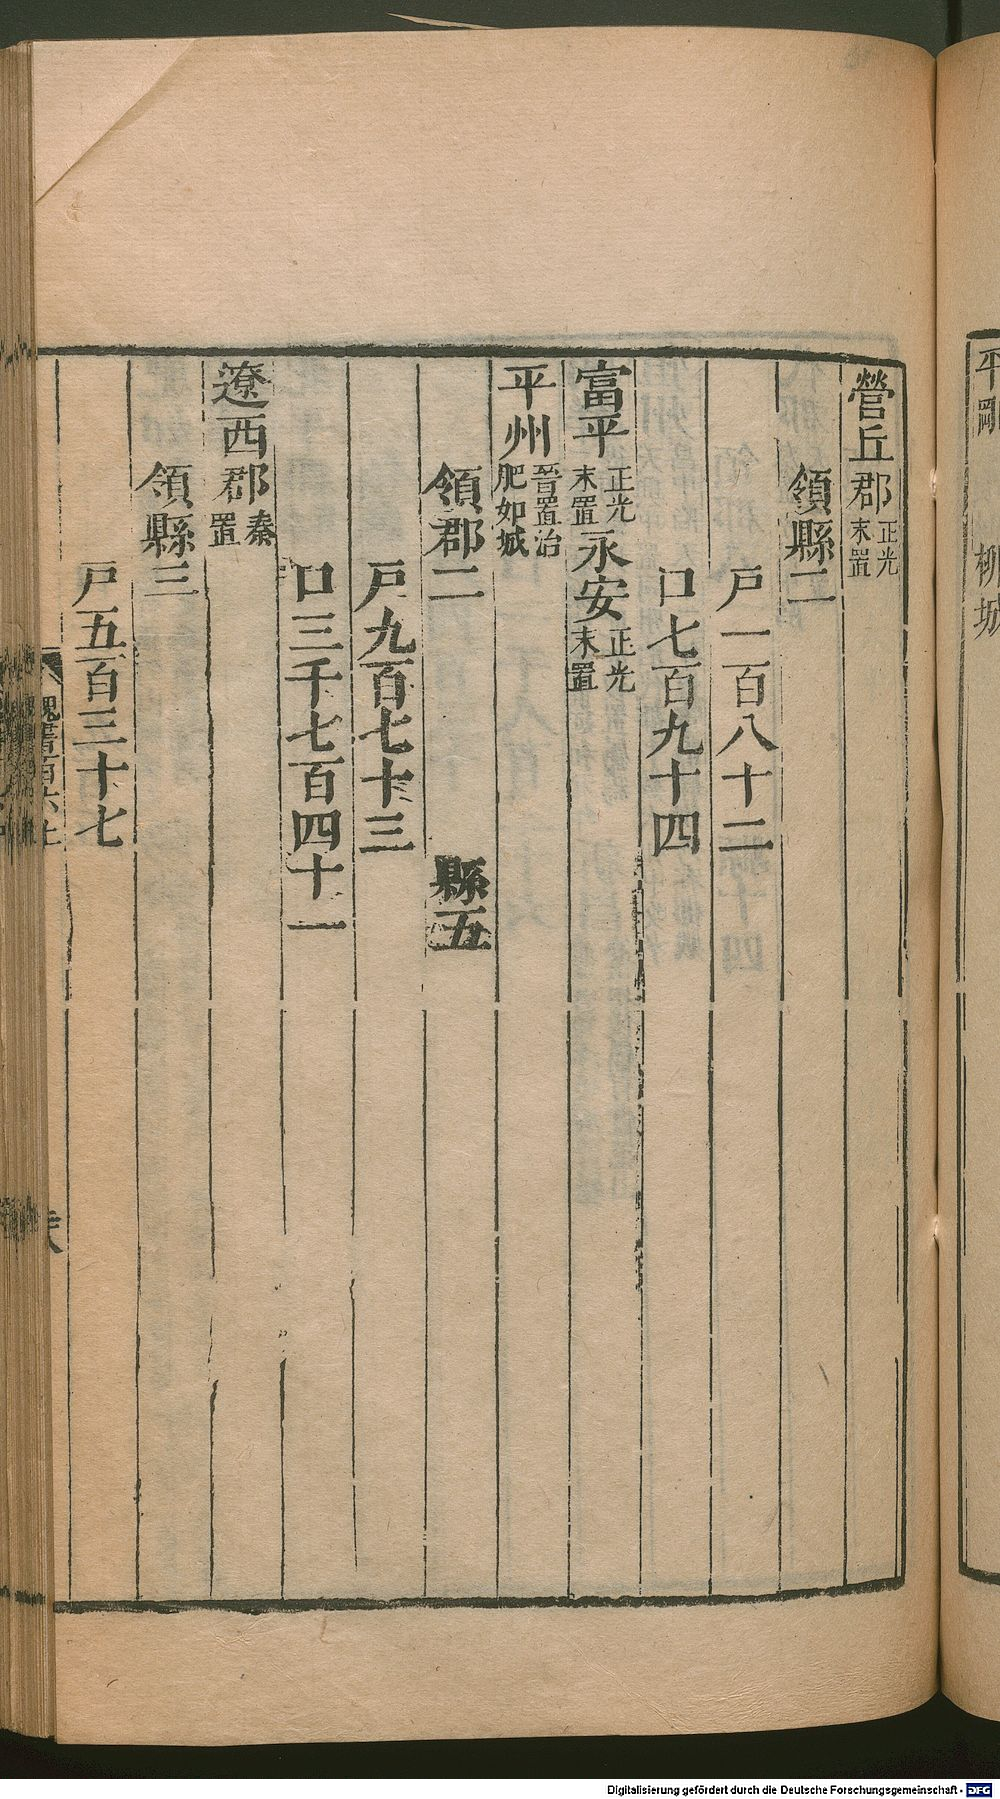 平剛 柳城
營丘郡正光末置
領縣二
戸一百八十二
口七百九十四
富平正光末置永安正光末置
平州晉置治肥如城
領郡二 縣五
戸九百七十三
口三千七百四十一
遼西郡秦置
領縣三
戸五百三十七
魏書百六上
Digitalisierung gefördert durch die Deutsche Forschungsgemeinschaft - DFG